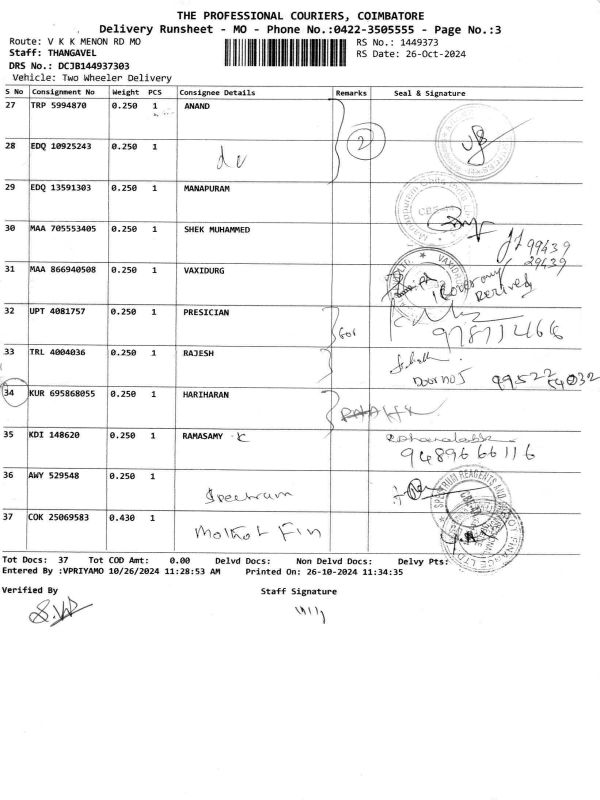 THE PROFESSIONAL COURIERS, COIMBATORE
Delivery Runsheet - MO - Phone No.:0422-3505555 - Page No.:3
Route: V K K MENON RD MO
RS No.: 1449373
Staff: THANGAVEL
RS Date: 26-Oct-2024
DRS No.: DCJB144937303
Vehicle: Two Wheeler Delivery
S No Consignment No Weight PCS Consignee Details Remarks Seal & Signature
27 TRP 5994870 0.250 1 ANAND
2
28 EDQ 10925243 0.250 1
29 EDQ 13591303 0.250 1 MANAPURAM
30 MAA 705553405 0.250 1 SHEK MUHAMMED
99439
29439
31 MAA 866940508 0.250 1 VAXIDURG
32 UPT 4081757 0.250 1 PRESICIAN
for
33 TRL 4004036 0.250 1 RAJESH
Door no 5
34 KUR 695868055 0.250 1 HARIHARAN
35 KDI 148620 0.250 1 RAMASAMY K
9489666116
36 AWY 529548 0.250 1
Spectrum
37 COK 25069583 0.430 1
Mothot Fin
Tot Docs: 37 Tot COD Amt: 0.00 Delvd Docs: Non Delvd Docs: Delvy Pts:
Entered By :VPRIYAMO 10/26/2024 11:28:53 AM Printed On: 26-10-2024 11:34:35
Verified By
Staff Signature